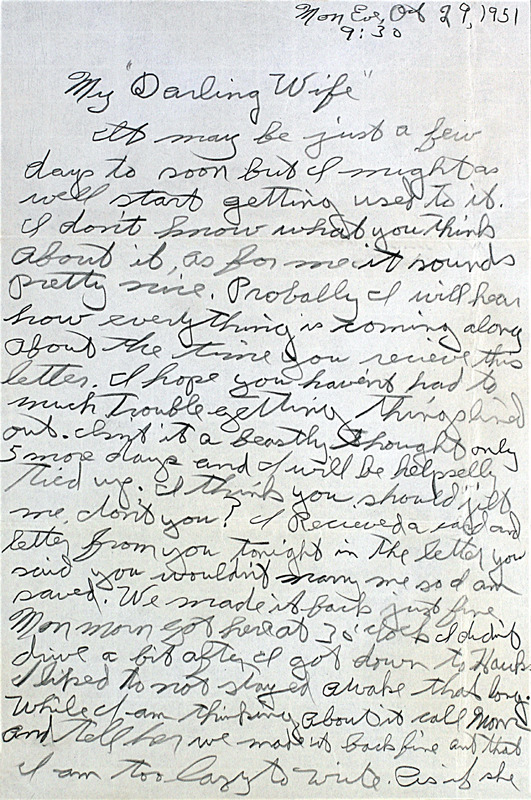 Mon Eve, Oct 29, 1951
9:30
My "Darling Wife"
It may be just a few
days to soon but I might as
well start getting used to it.
I don't know what you think
about it, as for me it sounds
pretty nice. Probally I will hear
how everything is coming along
about the time you recieve this
letter. I hope you havent had to
much trouble getting things lined
out. Isnt it a beastly thought only
5 more days and I will be helpselly
tied up. I think you should jilt
me, don't you? I Recieved a card and
letter from you tonight in the letter you
said you wouldn't marry me so I am
saved. We made it back just fine
Mon morn got here at 3 o'clock I didn't
drive a bit after I got down to Hanks
I liked to not stayed awake that long.
While I am thinking about it call Mom
and tell her we made it back fine and that
I am too lazy to write. As if she